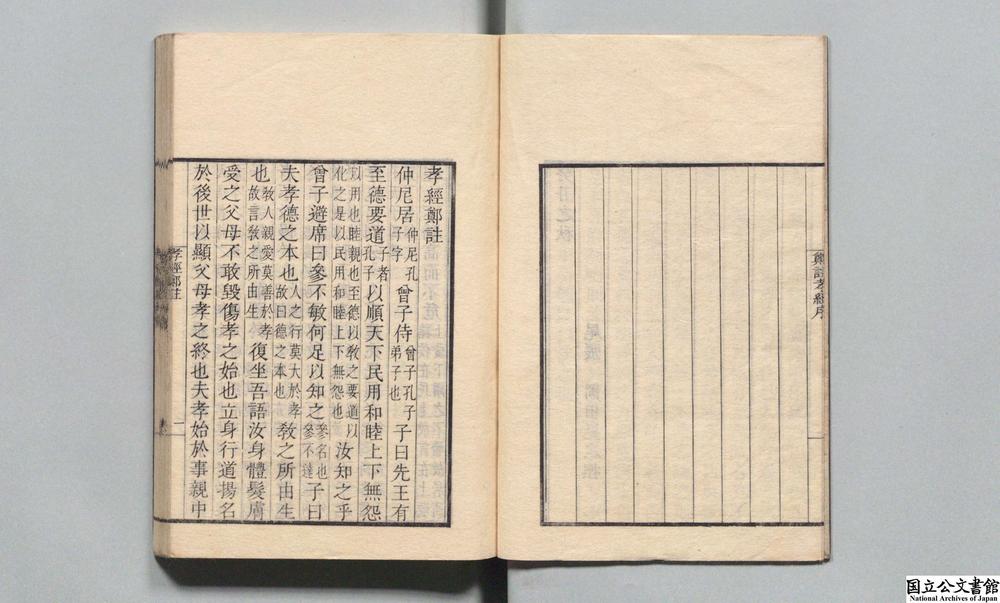 鄭註孝經序
一
孝經鄭註
仲尼居仲尼孔子字曾子侍曾子孔子弟子也子曰先王有
至德要道子者孔子以順天下民用和睦上下無怨
以用也睦親也至德以敎之要道以化之是以民用和睦上下無怨也汝知之乎
曾子避席曰參不敏何足以知之參名也參不達子曰
夫孝德之本也人之行莫大於孝故曰德之本也敎之所由生
也敎人親愛莫善於孝故言敎之所由生復坐吾語汝身體髮膚
受之父母不敢毀傷孝之始也立身行道揚名
於後世以顯父母孝之終也夫孝始於事親中
孝經鄭註
一
国立公文書館
National Archives of Japan